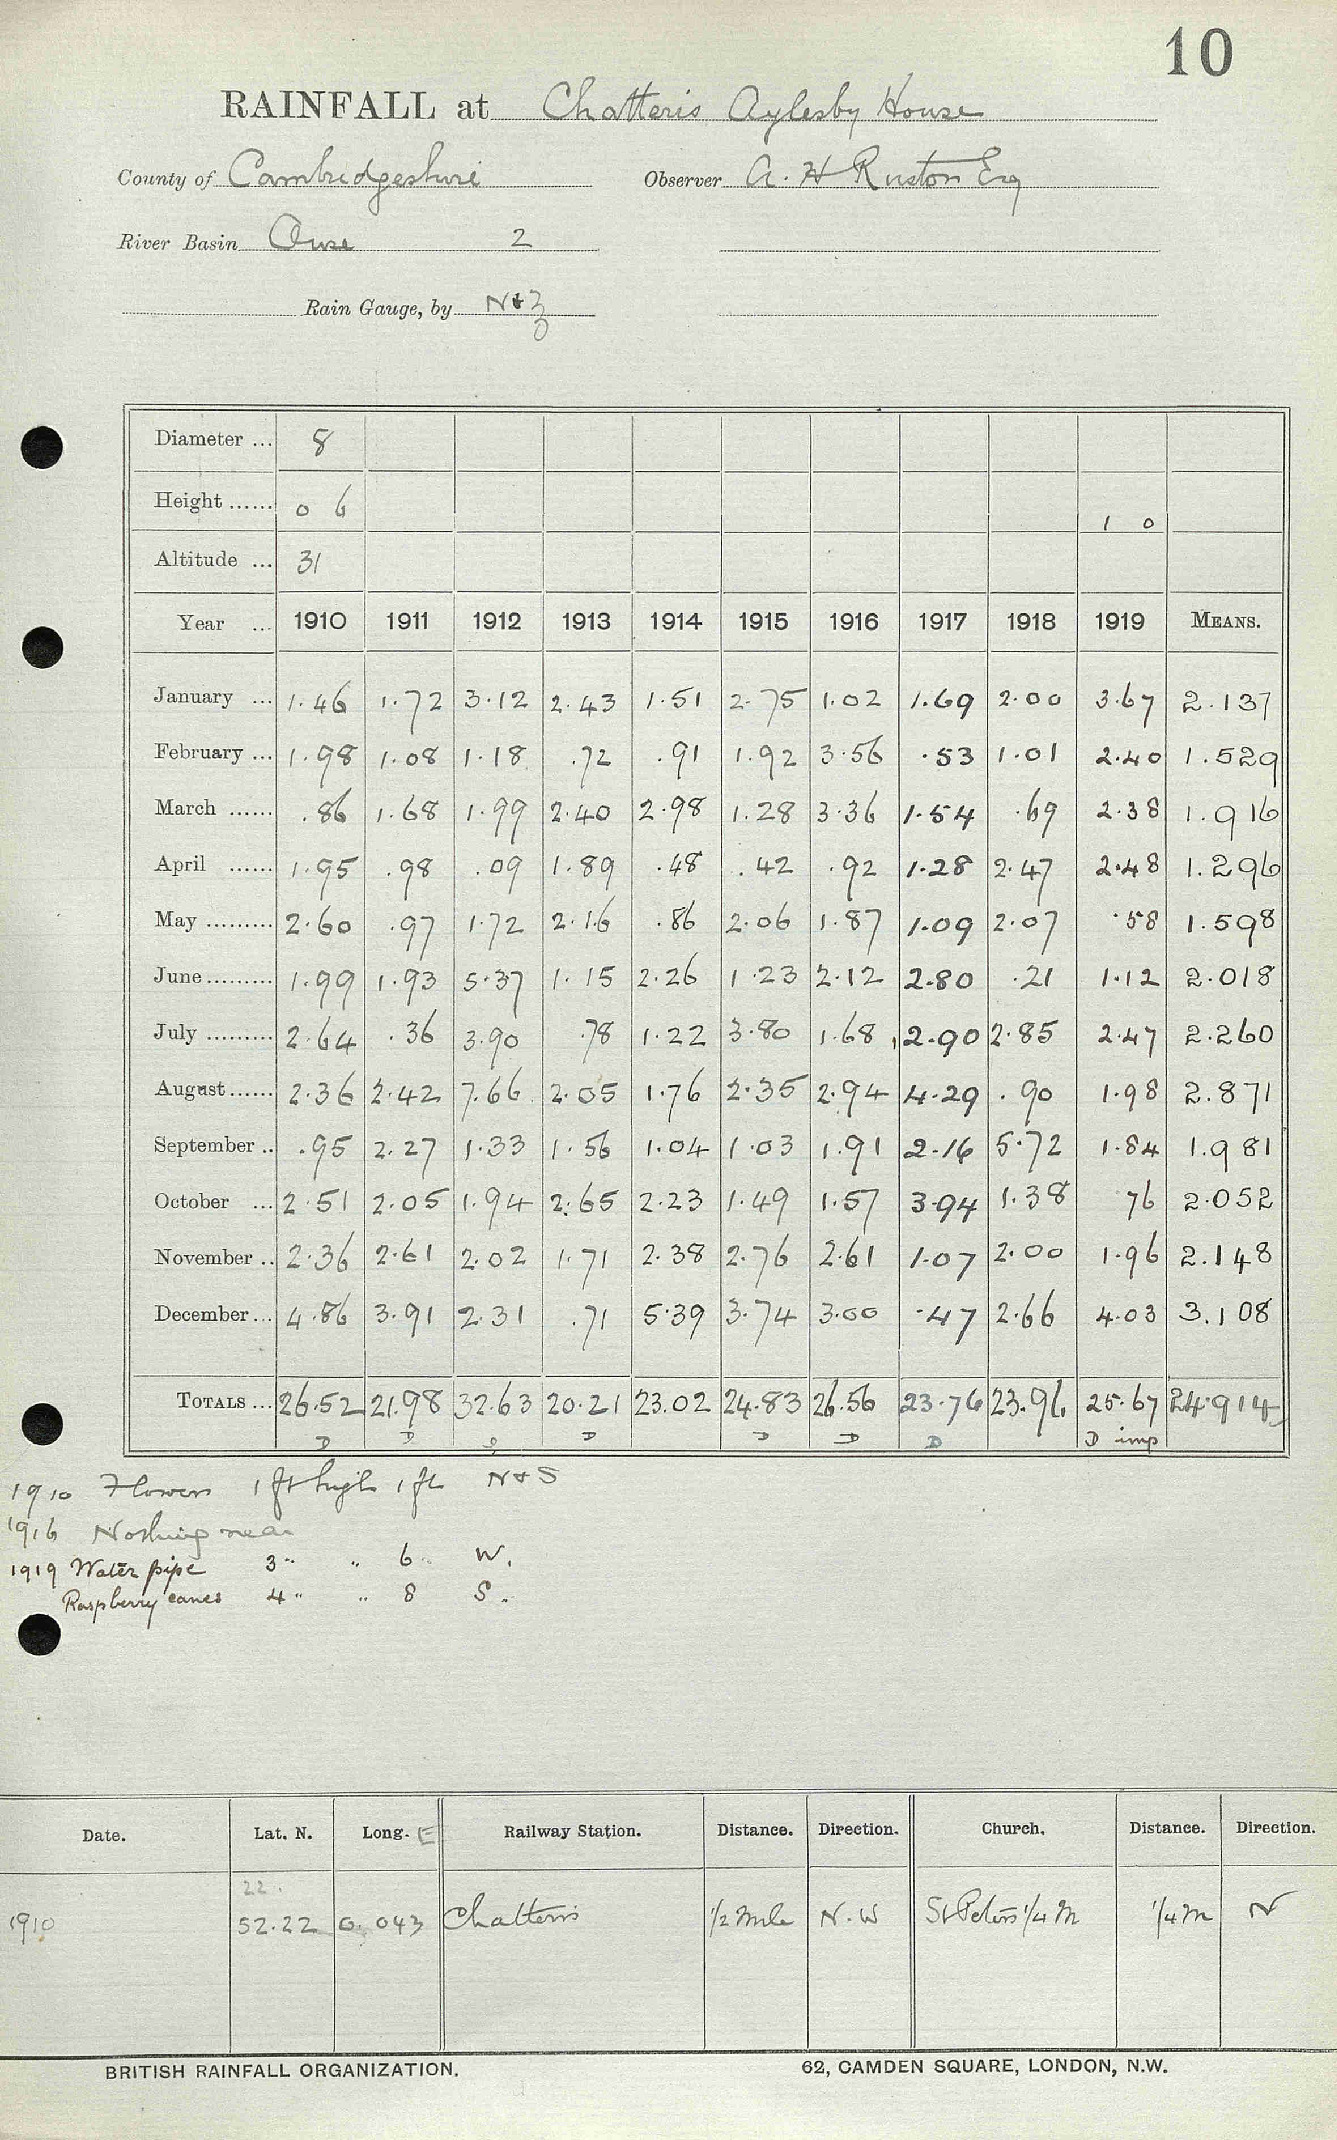 10
RAINFALL at Chatteris Aylesby House
County of Cambridgeshire Observer A. H Ruston Esq
River Basin Ouse 2
Rain Gauge, by N+Z
Diameter ... 8
Height ...... 0 6 1 0
Altitude ... 31
Year ... 1910 1911 1912 1913 1914 1915 1916 1917 1918 1919 MEANS.
January ... 1.46 1.72 3.12 2.43 1.51 2.75 1.02 1.69 2.00 3.67 2.137
February ... 1.98 1.08 1.18 .72 .91 1.92 3.56 .53 1.01 2.40 1.529
March ...... .86 1.68 1.99 2.40 2.98 1.28 3.36 1.54 .69 2.38 1.916
April ...... 1.95 .98 .09 1.89 .48 .42 .92 1.28 2.47 2.48 1.296
May ......... 2.60 .97 1.72 2.16 .86 2.06 1.87 1.09 2.07 .58 1.598
June ......... 1.99 1.93 5.37 1.15 2.26 1.23 2.12 2.80 .21 1.12 2.018
July ......... 2.64 .36 3.90 .78 1.22 3.80 1.68 2.90 2.85 2.47 2.260
August ...... 2.36 2.42 7.66 2.05 1.76 2.35 2.94 4.29 .90 1.98 2.871
September .. .95 2.27 1.33 1.56 1.04 1.03 1.91 2.16 5.72 1.84 1.981
October ... 2.51 2.05 1.94 2.65 2.23 1.49 1.57 3.94 1.38 76 2.052
November .. 2.36 2.61 2.02 1.71 2.38 2.76 2.61 1.07 2.00 1.96 2.148
December ... 4.86 3.91 2.31 .71 5.39 3.74 3.00 .47 2.66 4.03 3.108
TOTALS ... 26.52 21.98 32.63 20.21 23.02 24.83 26.56 23.76 23.96 25.67 24.914
D D D D D D D D imp
1910 Flowers 1 ft high 1 ft N + S
1916 Nothing near
1919 Water pipe 3 " " 6 " W.
Raspberry canes 4 " " 8 S.
Date. Lat. N. Long. E Railway Station. Distance. Direction. Church. Distance. Direction.
22.
1910 52.22 0. 043 Chatteris 1/2 mile N.W St Peters 1/4 M 1/4 m N
BRITISH RAINFALL ORGANIZATION. 62, CAMDEN SQUARE, LONDON, N.W.